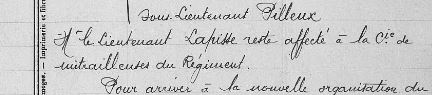 Sous-Lieutenant Pilleux
Mr le Lieutenant Lapisse reste affecté à la Cie de
mitrailleuses du Régiment.
Pour arriver à la nouvelle organisation du